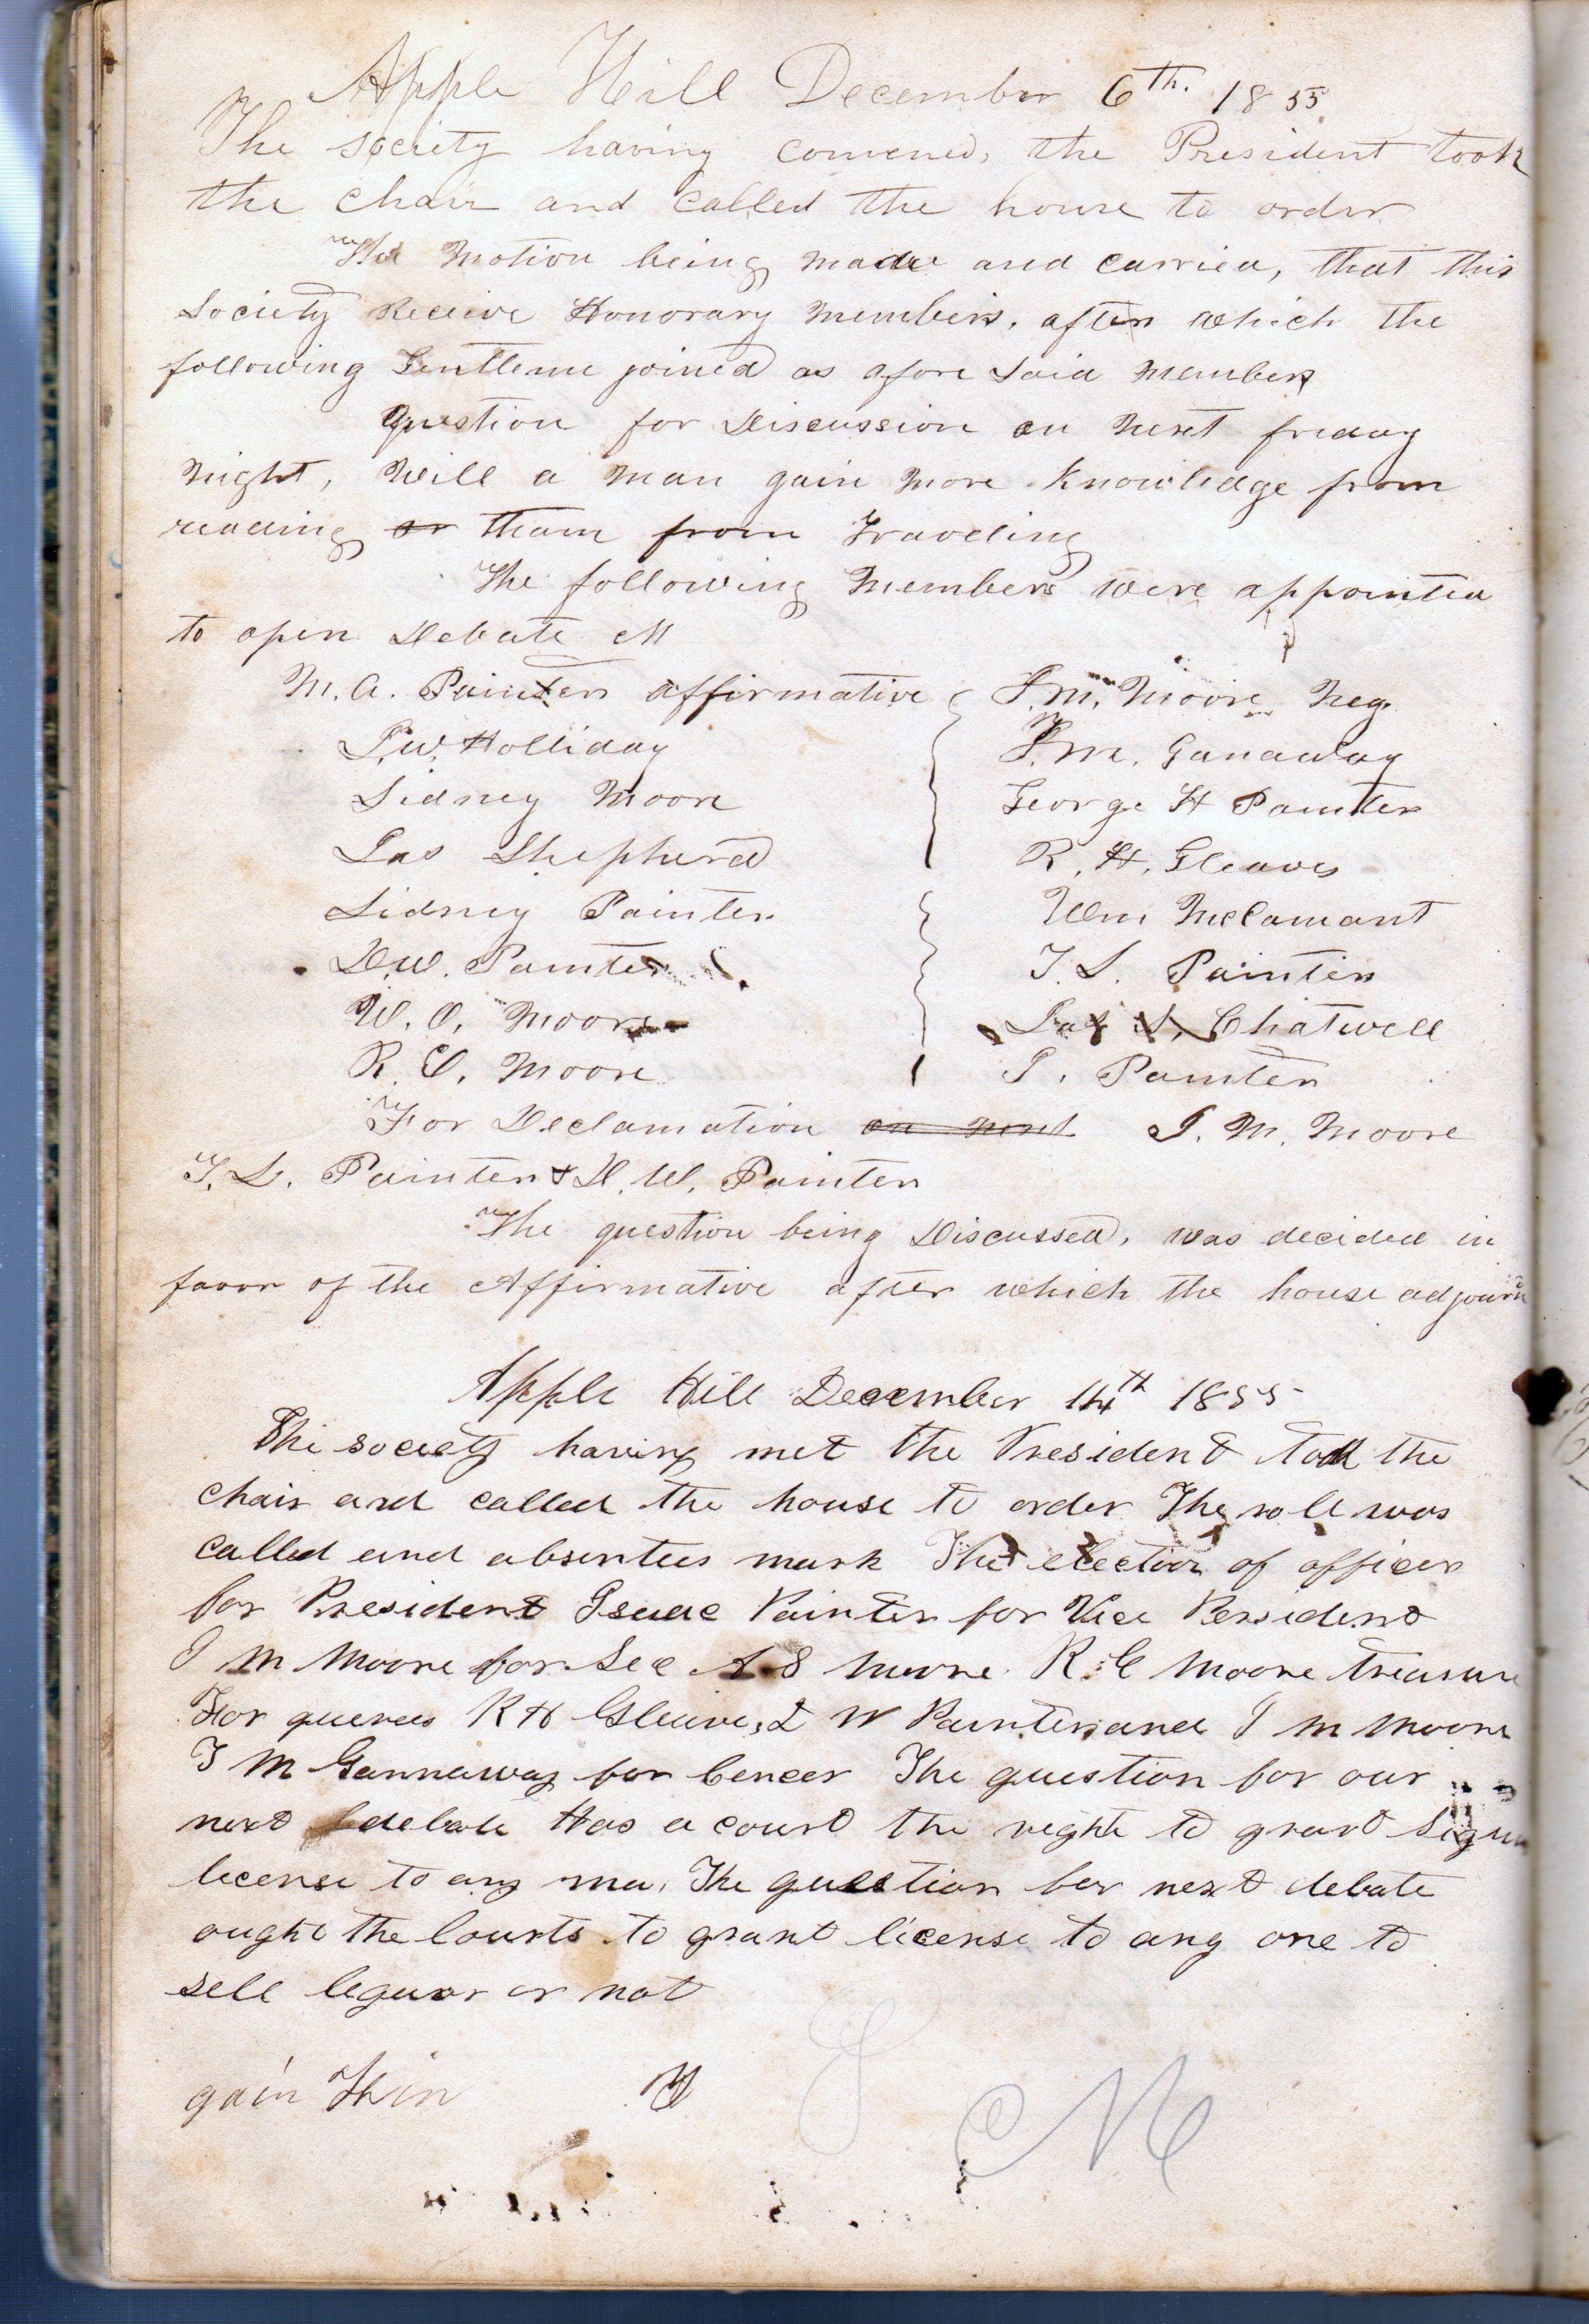 Apple Hill December 6th. 1855.
The society having convened, the President took
the chair and called the house to order
The Motion being made and carried, that this
Society Recieve Honorary Members, after which the
following Gentleme joined as afore Said Members
Question for Discussion on next friday
Night, Will a Man gain More Knowledge from
reading or than from Traveling
The following Members were appointed
to open Debate
M. A. Painter affirmative J. M. Moore Neg.
J. W. Holliday J. M. Ganaway
Sidney Moore George H Painter
Jas Shepherd R. H. Gleaves
Sidney Painter Wm McCamant
D. W. Painter T. S. Painter
W. O. Moore Jas S. Chatwell
R. C. Moore I. Painter
For Declamation on next J. M. Moore
T. S. Painter & D. W. Painter
The question being Discussed, was decided in
favor of the Affirmative after which the house adjourn
Apple Hill December 14th 1855
The society having met the President took the
chair and called the house to order The roll was
called and absentees mark The election of officers
for President Isaac Painter for Vice Persident
J M Moore for Sec A S Moore R C Moore treasure
For querees R H Gleaves, D W Painter and J M Moore
J M Gannaway for Cencer The question for our
next debate Has a court the right to grant
license to any ma. The question for next debate
ought the Courts to grant license to any one to
sell liquor or not
gain
M